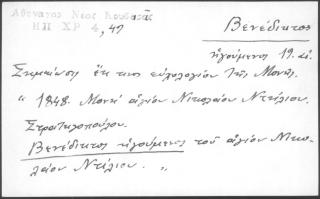 Αθανατος Νεος Κουβαρᾶς
ΗΠ ΧΡ 4, 47
Βενέδικτος
ἡγούμενος 19. αἰ.
Σημείωσις ἐκ του εὐχολογίου τῆς Μονῆς
" 1848. Μονή ἁγίου Νικολάου Ντίλιου.
Στρατηγοπούλου.
Βενέδικτος ἡγούμενος τοῦ ἁγίου Νικο-
λάου Ντίλιου. "